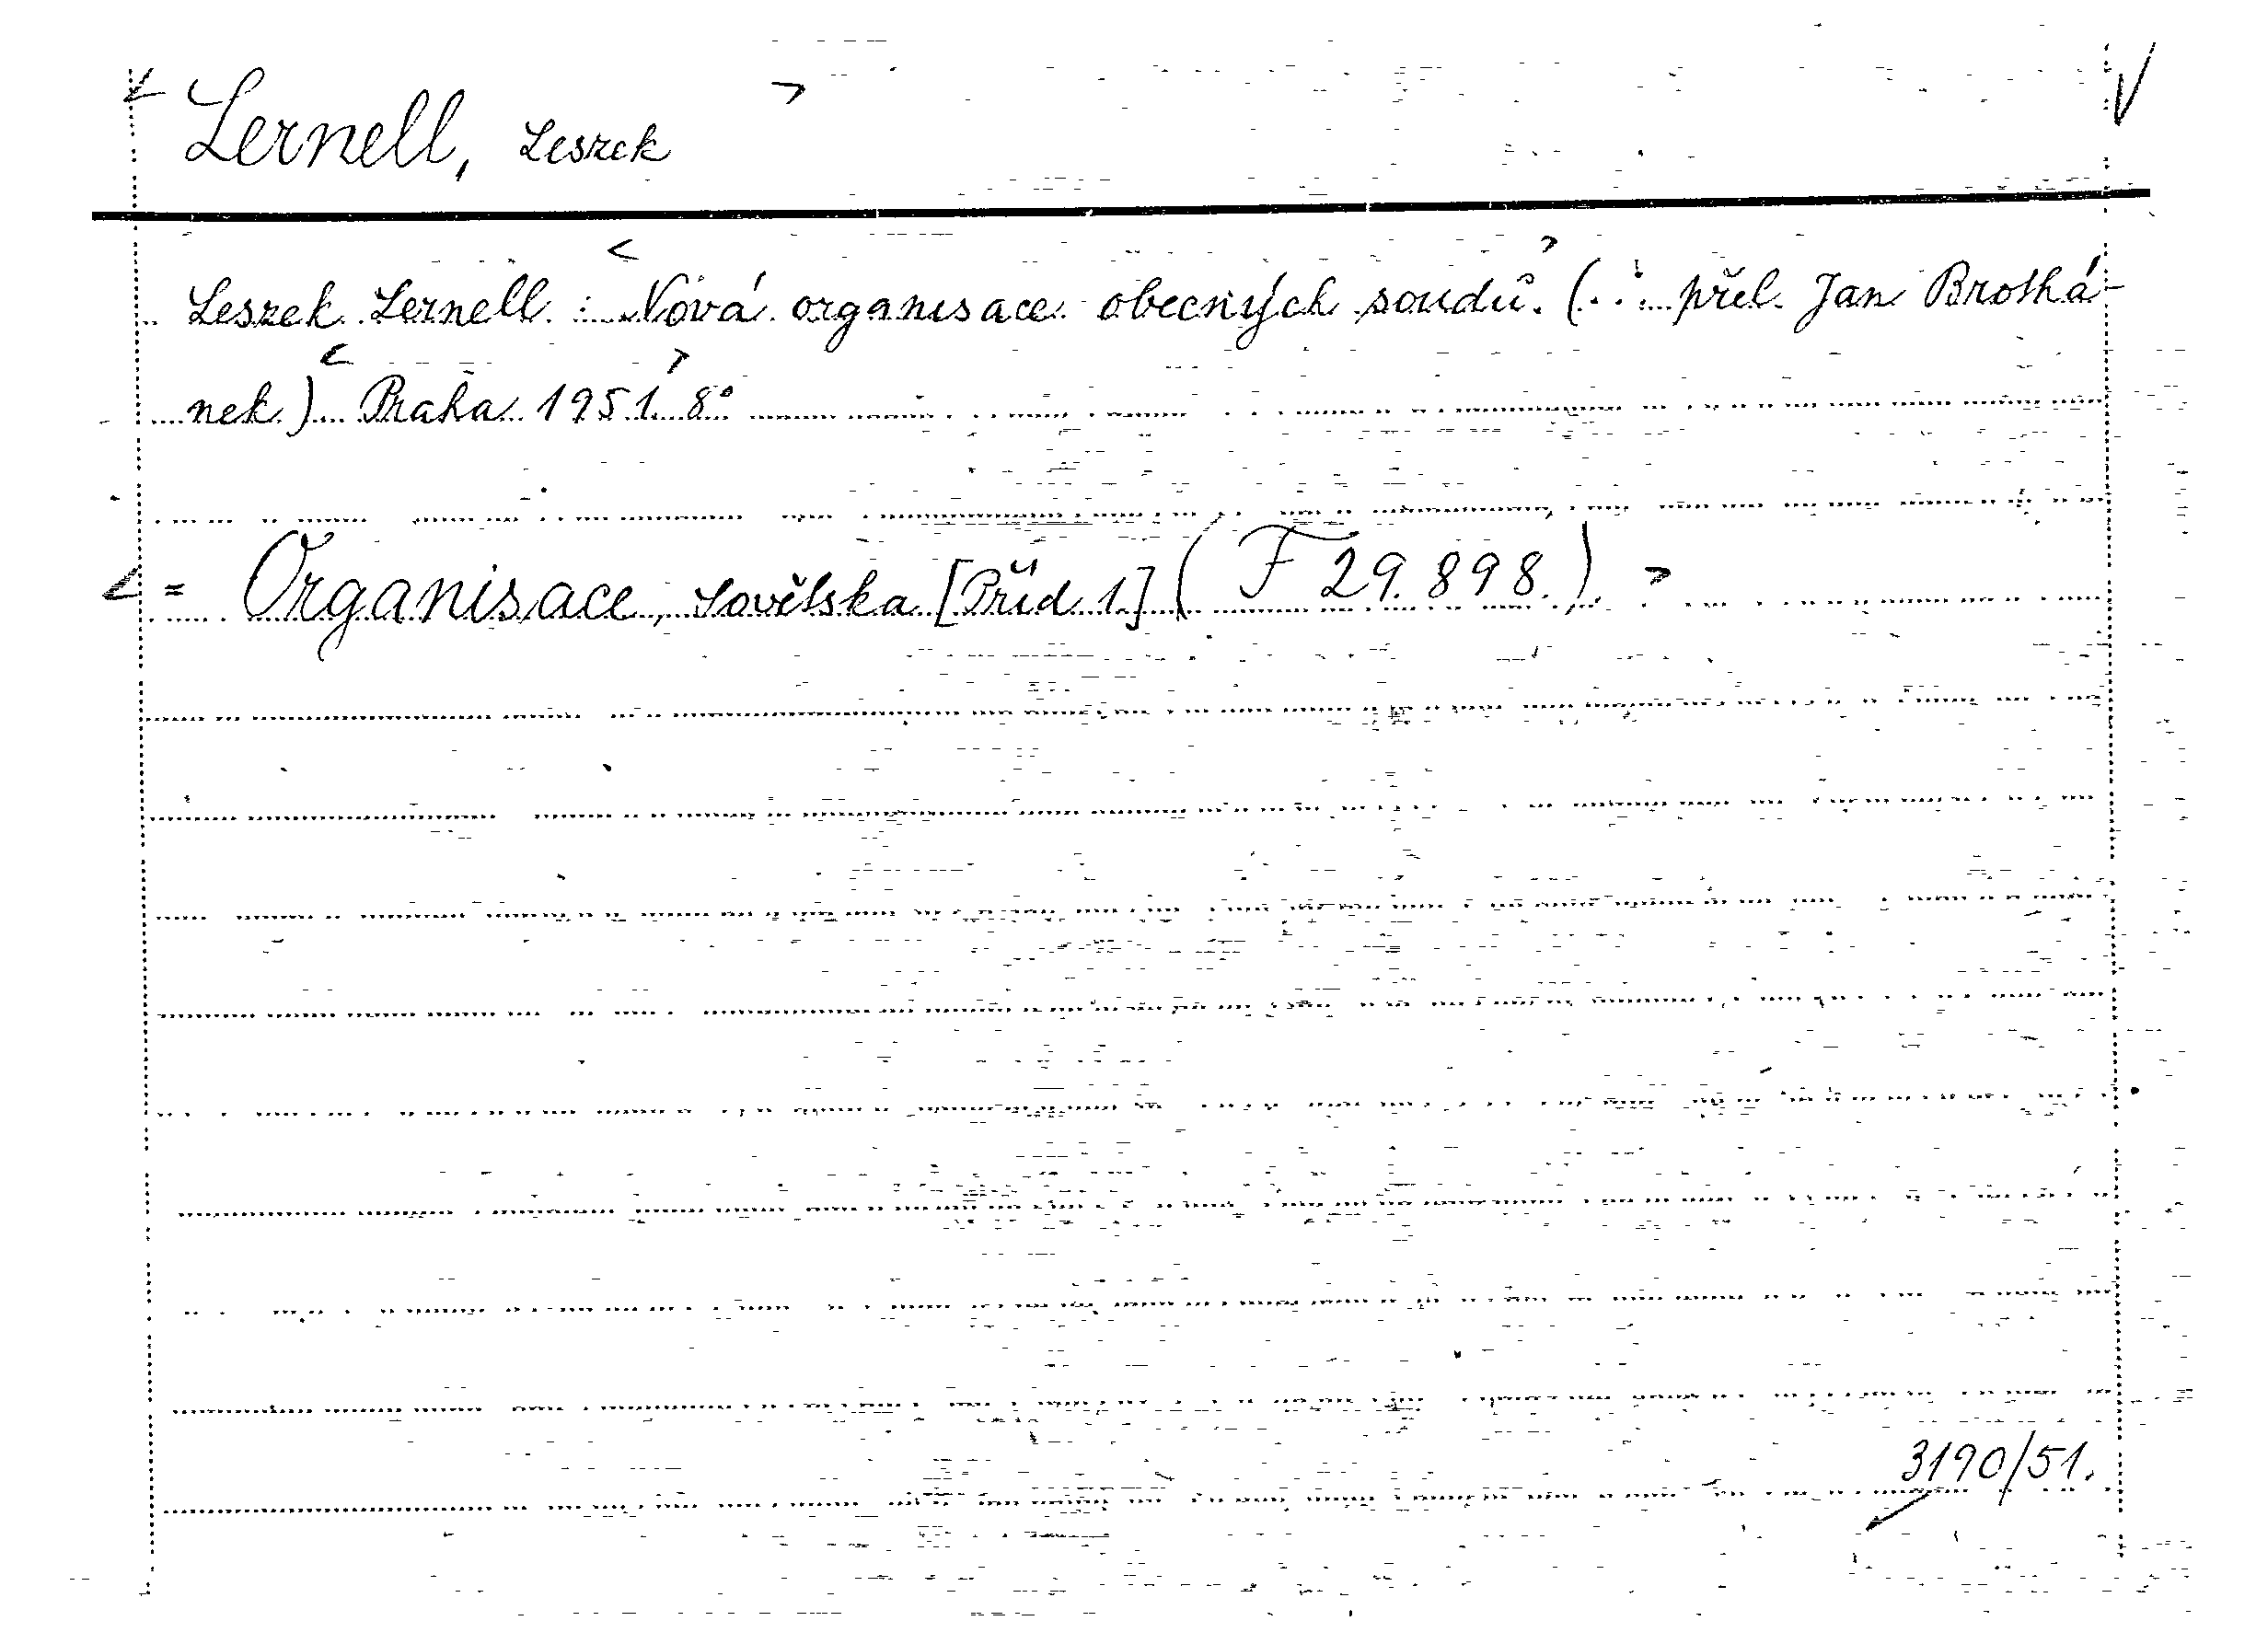 Lernell, Leszek
Leszek Lernell : Nová organisace obecných soudů. (... přel. Jan Brothá-
nek.) Praha 1951. 8°
= Organisace, sovětska [Příd. 1.] (F 29.898.)
3190/51.